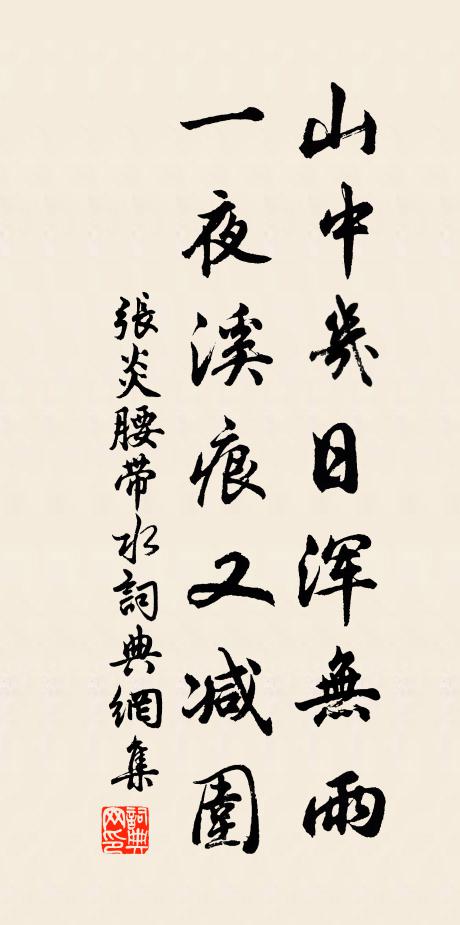 山中幾日浑無雨
一夜溪痕又減圍
張炎腰带水詞典網集
詞典網印